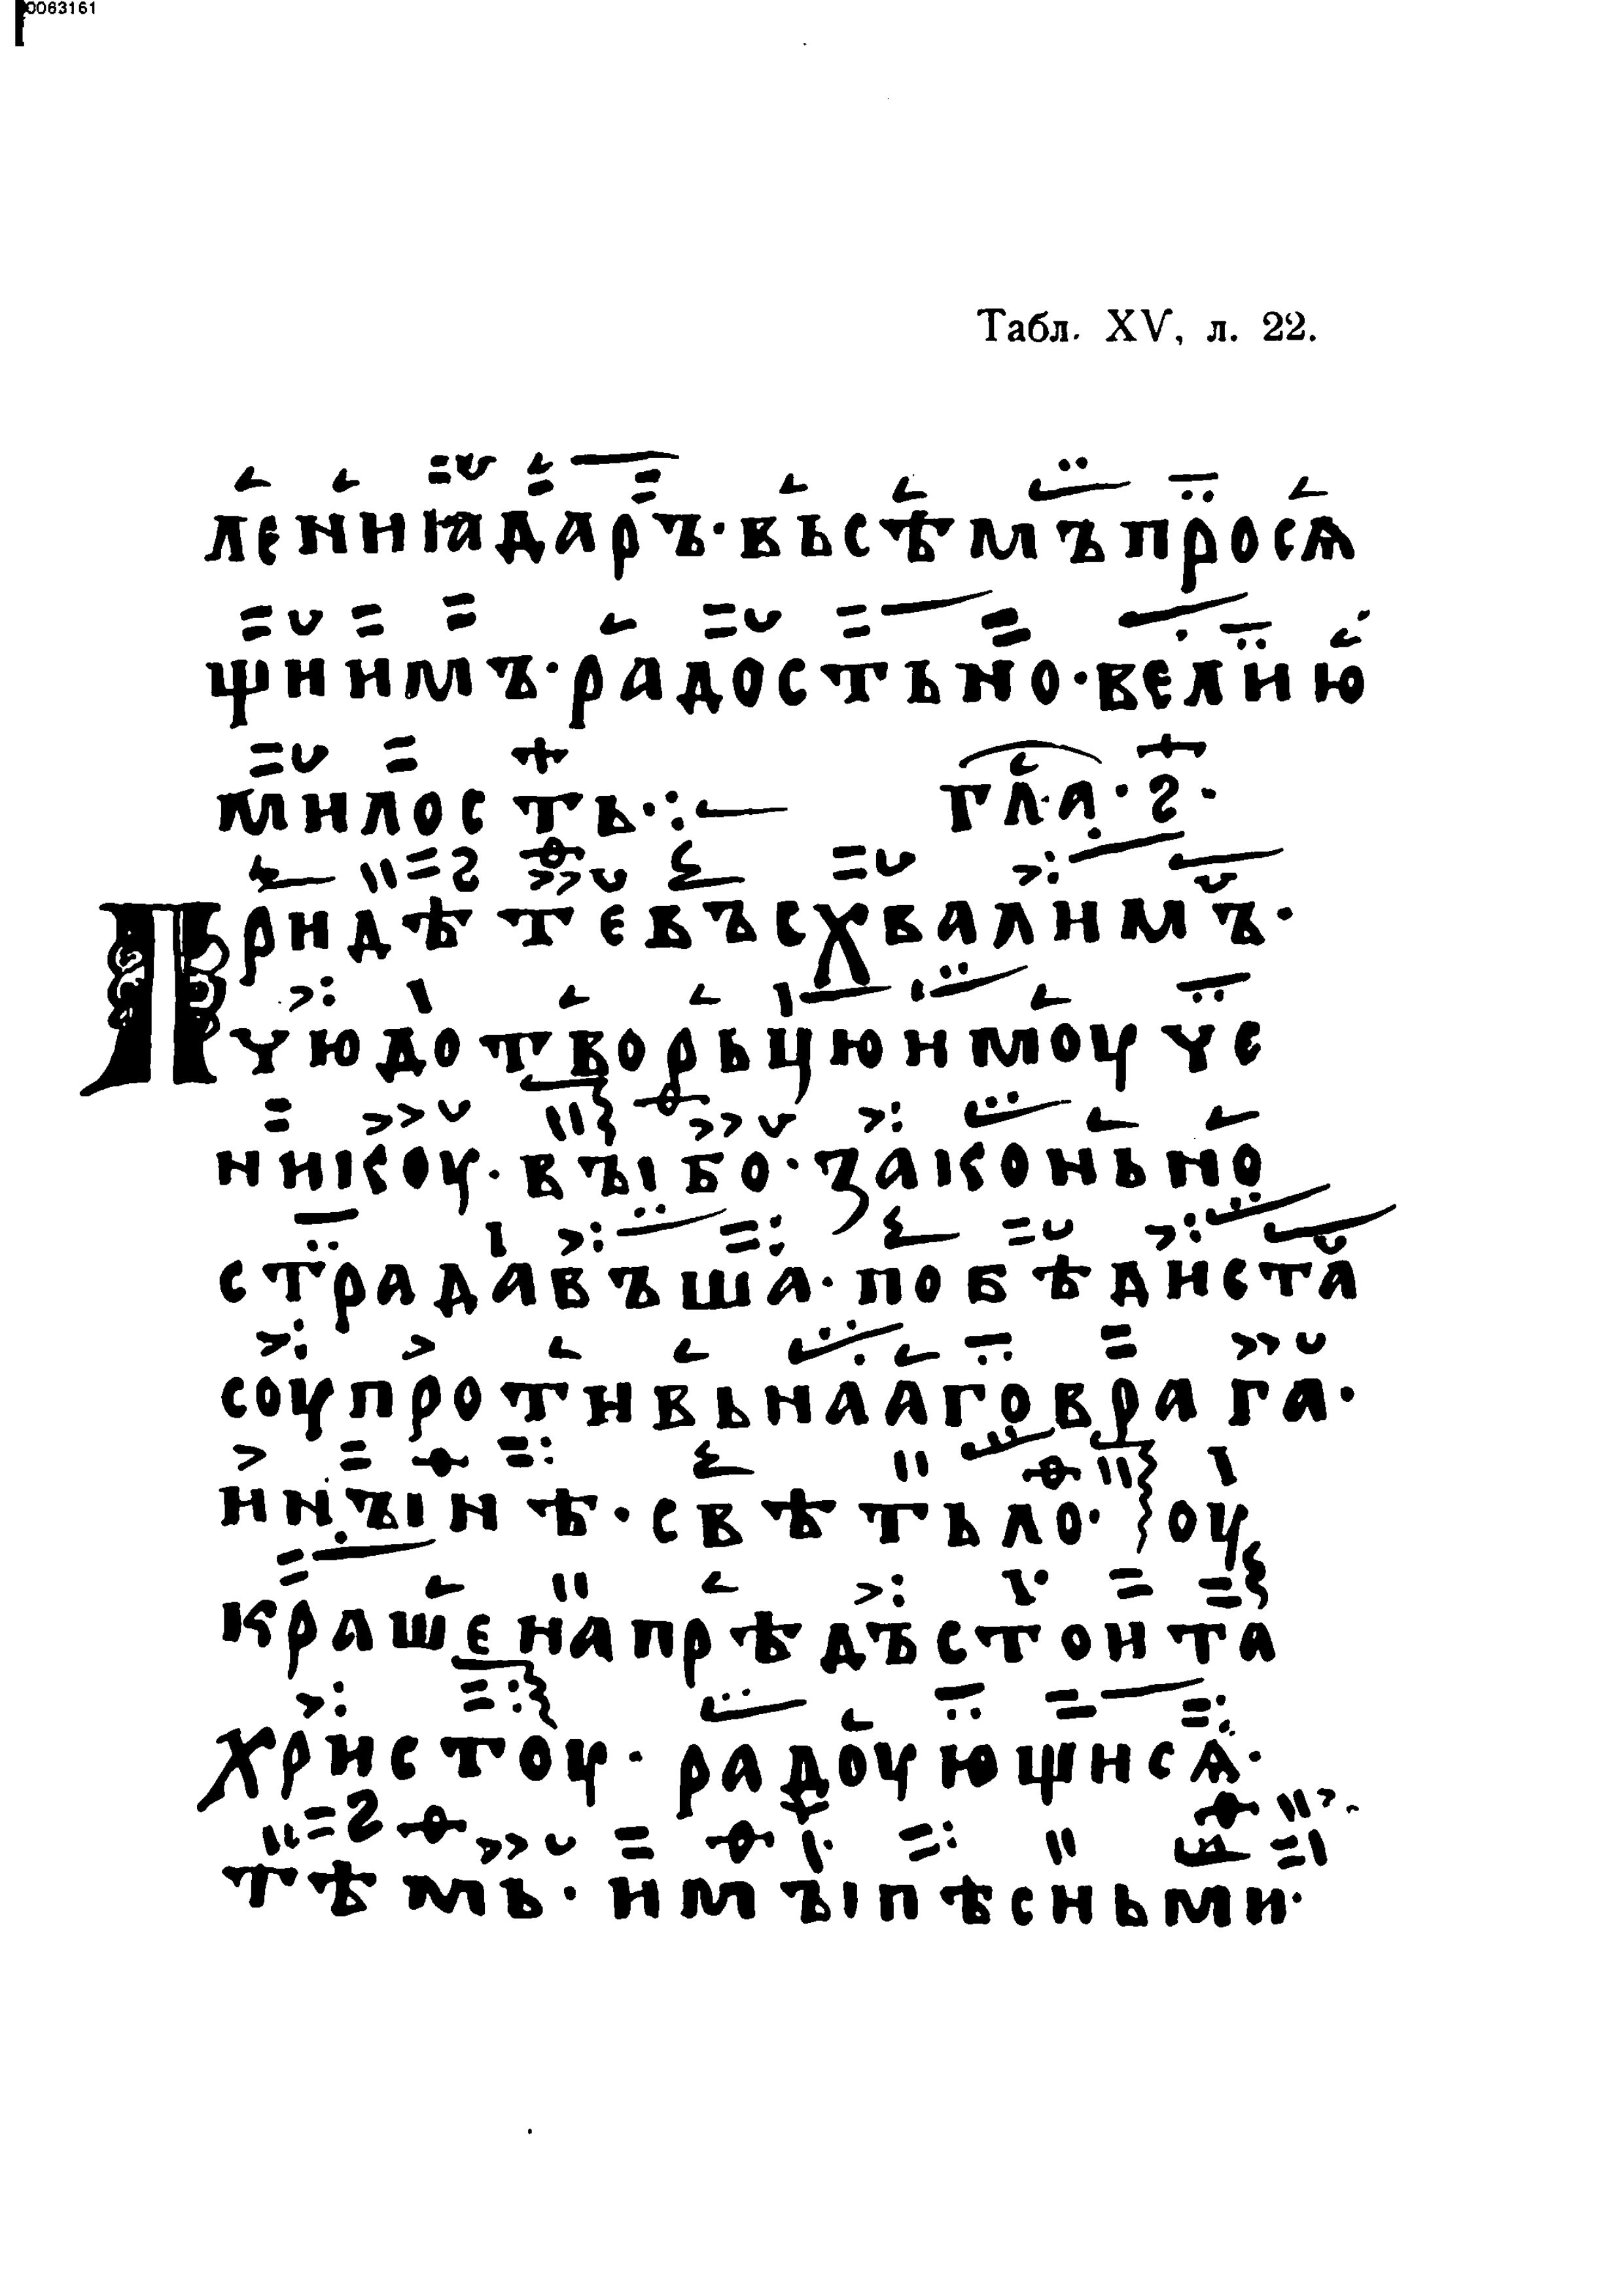 0063161
Табл. XV, л. 22.
лениꙗдаръ·вьсѣмъпросѧ
щиимъ·радостьно·велию
милость·:— гла·ѕ·
Придѣтевъсхвалимъ·
чюдотворьцюимоуче
никоу·въıбо·законьно
страдавъша·побѣдиста
соупротивьнааговрага·
инъıнѣ·свѣтьло·оу
крашенапрѣдъстоита
христоу·радоующисѧ·
тѣмь·имъıпѣсньми·